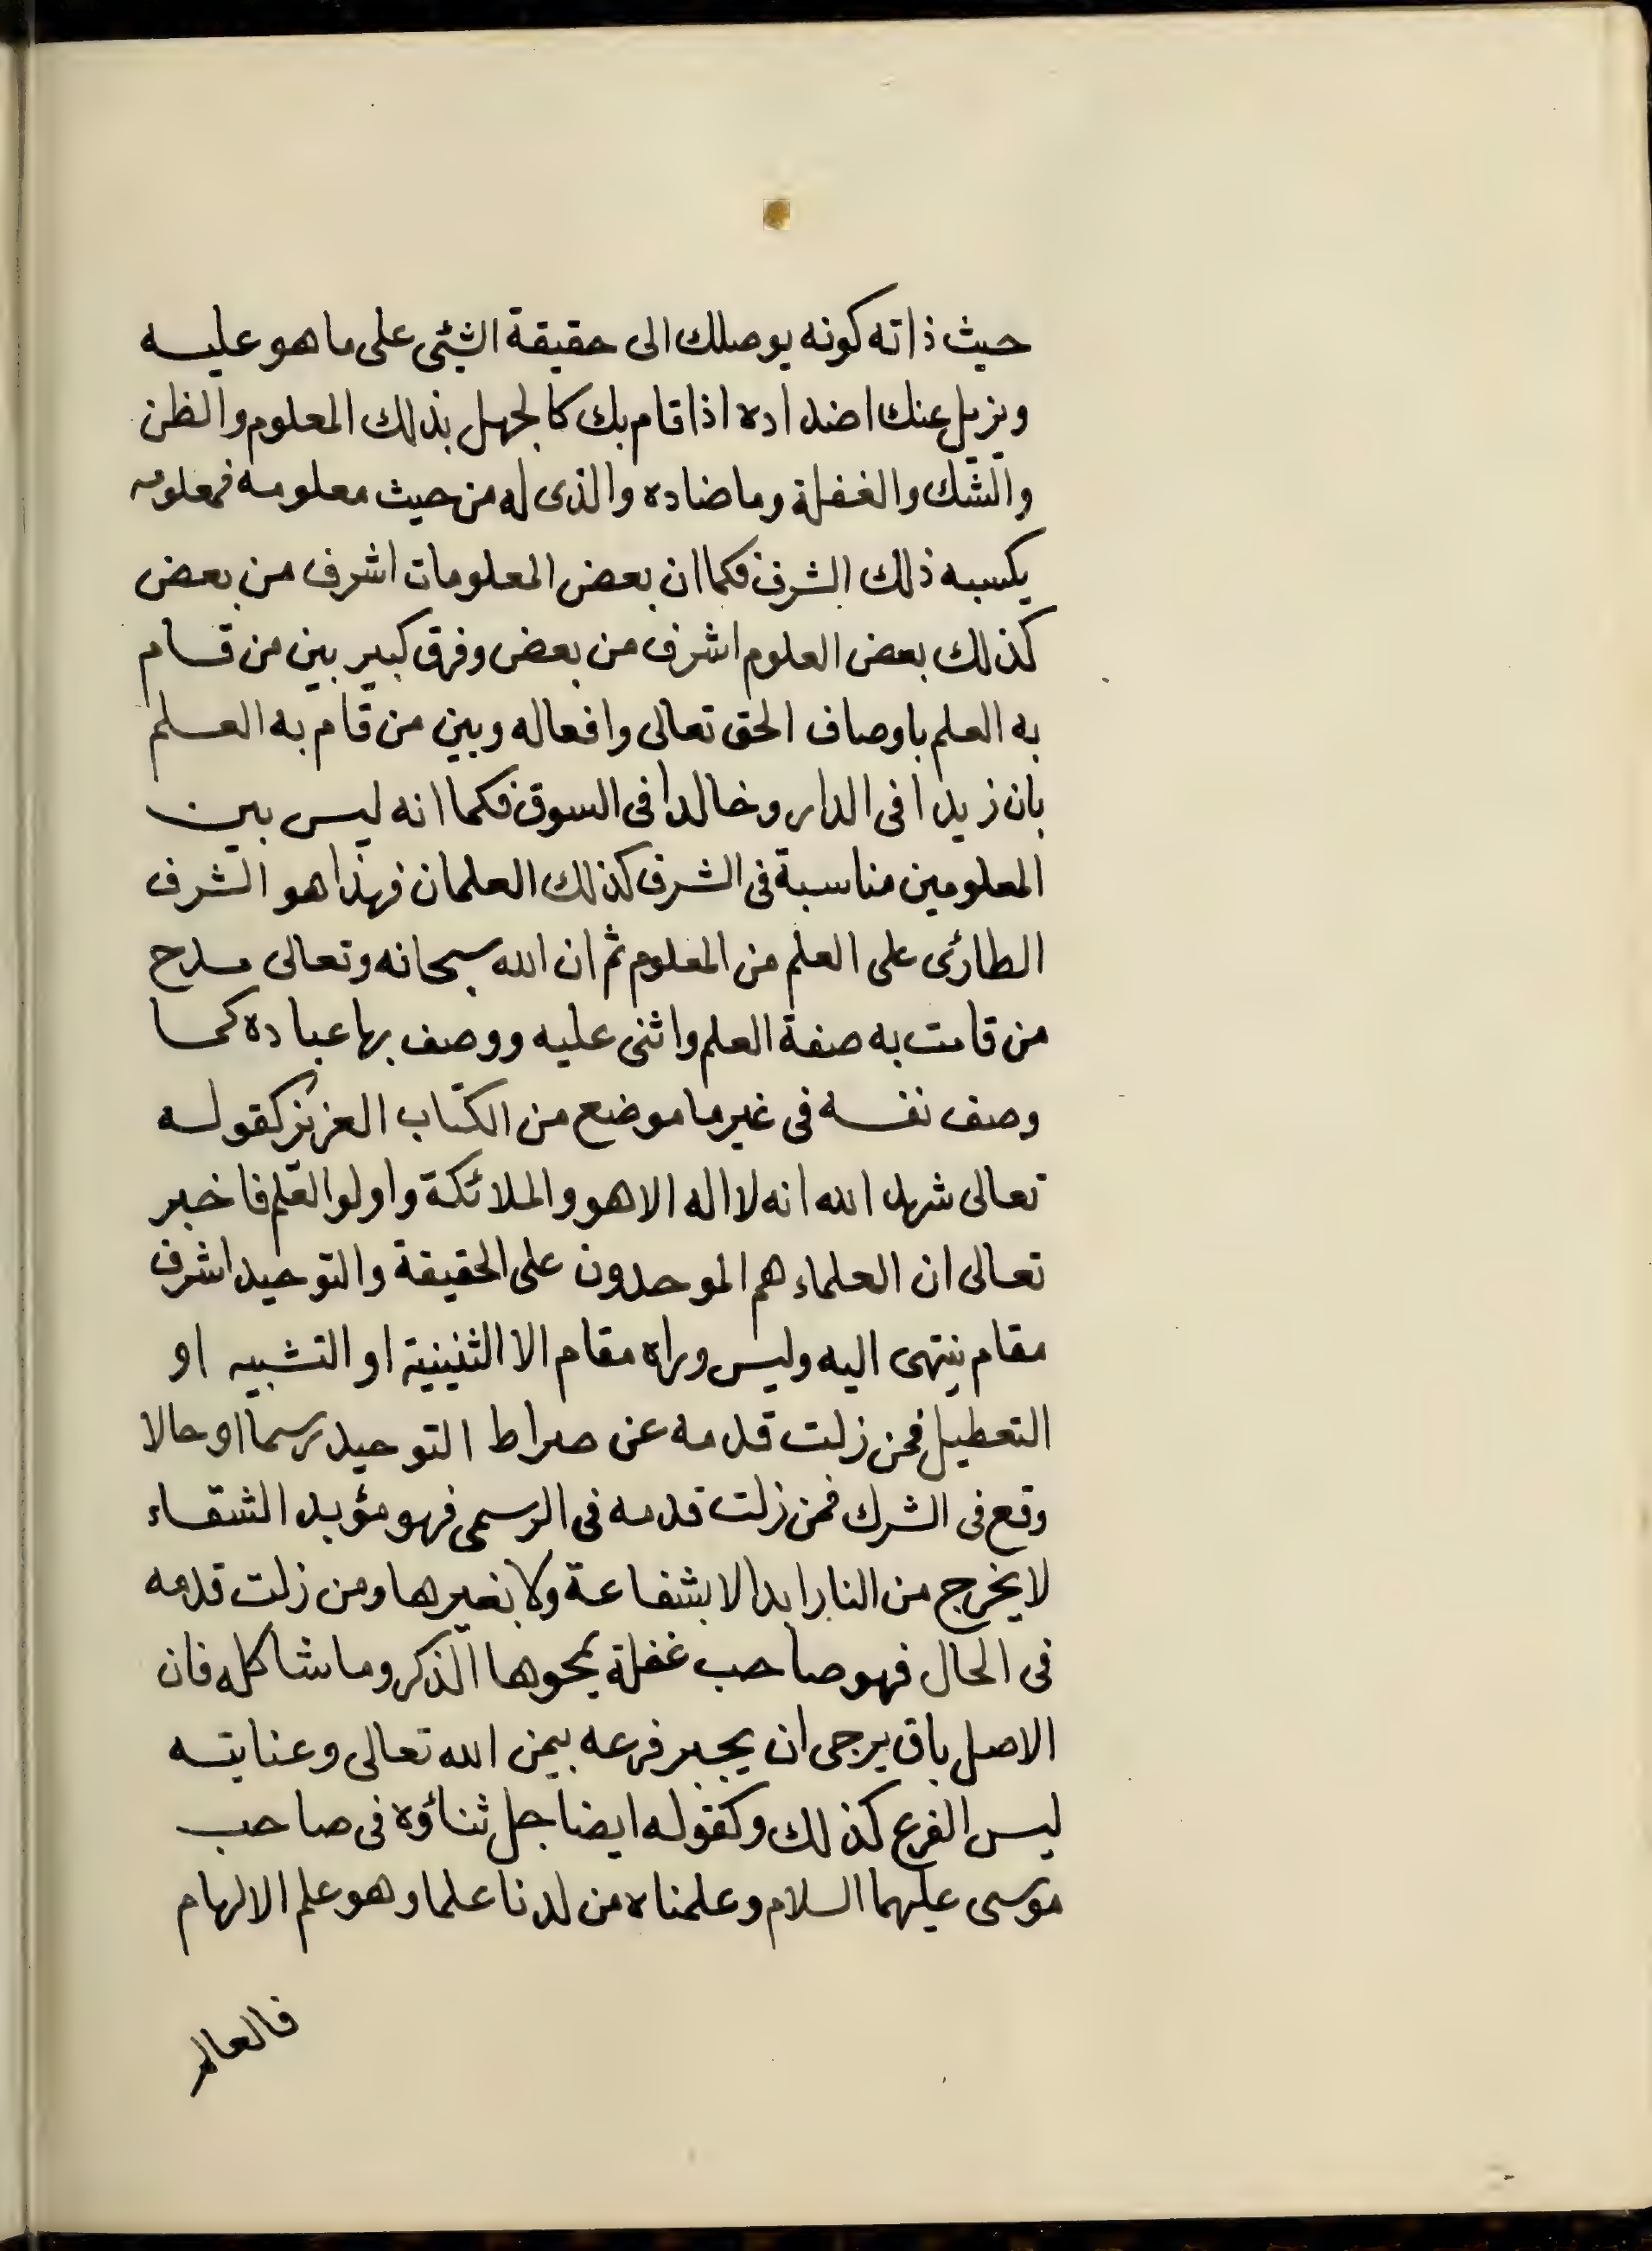 حيث ذاته كونه يوصلك الى حقيقة الشئى على ما هو عليه
ويزيل عنك اضداده اذا قام بك كالجهل بذلك المعلوم والظن
والشك والغفلة وما ضاده والذى له من حيث معلومه فمعلومه
يكسبه ذلك الشرف فكما ان بعض المعلومات اشرف من بعض
كذلك بعض العلوم اشرف من بعض وفرق كبير بين من قام
به العلم باوصاف الحق تعالى وافعاله وبين من قام به العلم
بان زيدا فى الدار وخالدا فى السوق فكما انه ليس بين
المعلومين مناسبة فى الشرف كذلك العلمان فهذا هو الشرف
الطارئى على العلم من المعلوم ثم ان الله سبحانه وتعالى مدح
من قامت به صفة العلم واثنى عليه ووصف بها عباده كما
وصف نفسه فى غير ما موضع من الكتاب العزيز كقوله
تعالى شهد الله انه لا اله الا هو والملائكة واولوا العلم فاخبر
تعالى ان العلماء هم الموحدون على الحقيقة والتوحيد اشرف
مقام ينتهى اليه وليس وراه مقام الا الثنينية او التشبيه او
التعطيل فمن زلت قدمه عن صراط التوحيد رسما او حالا
وقع فى الشرك فمن زلت قدمه فى الرسمى فهو مؤبد الشقاء
لا يخرج من النار ابدا لا بشفاعة ولا بغيرها ومن زلت قدمه
فى الحال فهو صاحب غفلة يمحوها الذكر وما شاكله فان
الاصل باق يرجى ان يجبر فرعه بيمن الله تعالى وعنايته
ليس الفرع كذلك وكقوله ايضا جل ثناؤه فى صاحب
موسى عليهما السلام وعلمناه من لدنا علما وهو علم الالهام
فالعالم